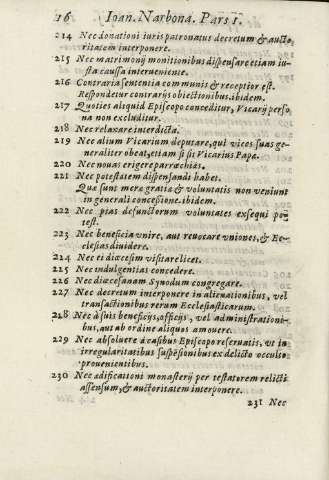 16 Ioan. Narbona. Pars I.
214 Nec donationi iuris patronatus decretum & aucto
ritatem interponere.
215 Nec matrimonij monitionibus dispensare etiam iu-
sta caussa interueniente.
216 Contraria sententia communis & receptior est.
Respondetur contrarijs obiectionibus. ibidem.
217 Quoties aliquid Episcopo conceditur, Vicarij perso
na non excluditur.
218 Nec relaxare interdicta.
219 Nec alium Vicarium deputare, qui vices suas ge-
neraliter obeat, etiam si sit Vicarius Papæ.
220 Nec nouas erigere parrochias.
221 Nec potestatem dispensandi habet.
Quæ sunt meræ gratiæ & voluntatis non veniunt
in generali concesione. ibidem.
222 Nec pias defunctorum voluntates exsequi po-
test.
223 Nec beneficia vnire, aut reuocare vniones, & Ec-
clesias diuidere.
224 Nec ei diœcesim visitare licet.
225 Nec indulgentias concedere.
226 Nec diœcesanam Synodum congregare.
227 Nec decretum interponere in alienationibus, vel
transactionibus rerum Ecclesiasticarum.
228 Nec à suis beneficijs, officijs, vel administrationi-
bus, aut ab ordine aliquos amouere.
229 Nec absoluere à casibus Episcopo reseruatis, vt in
irregularitatibus suspẽsionibus ex delicto occulto
prouenientibus.
230 Nec ædificationi monasterij per testatorem relicti
assensum, & auctoritatem interponere.
231 Nec